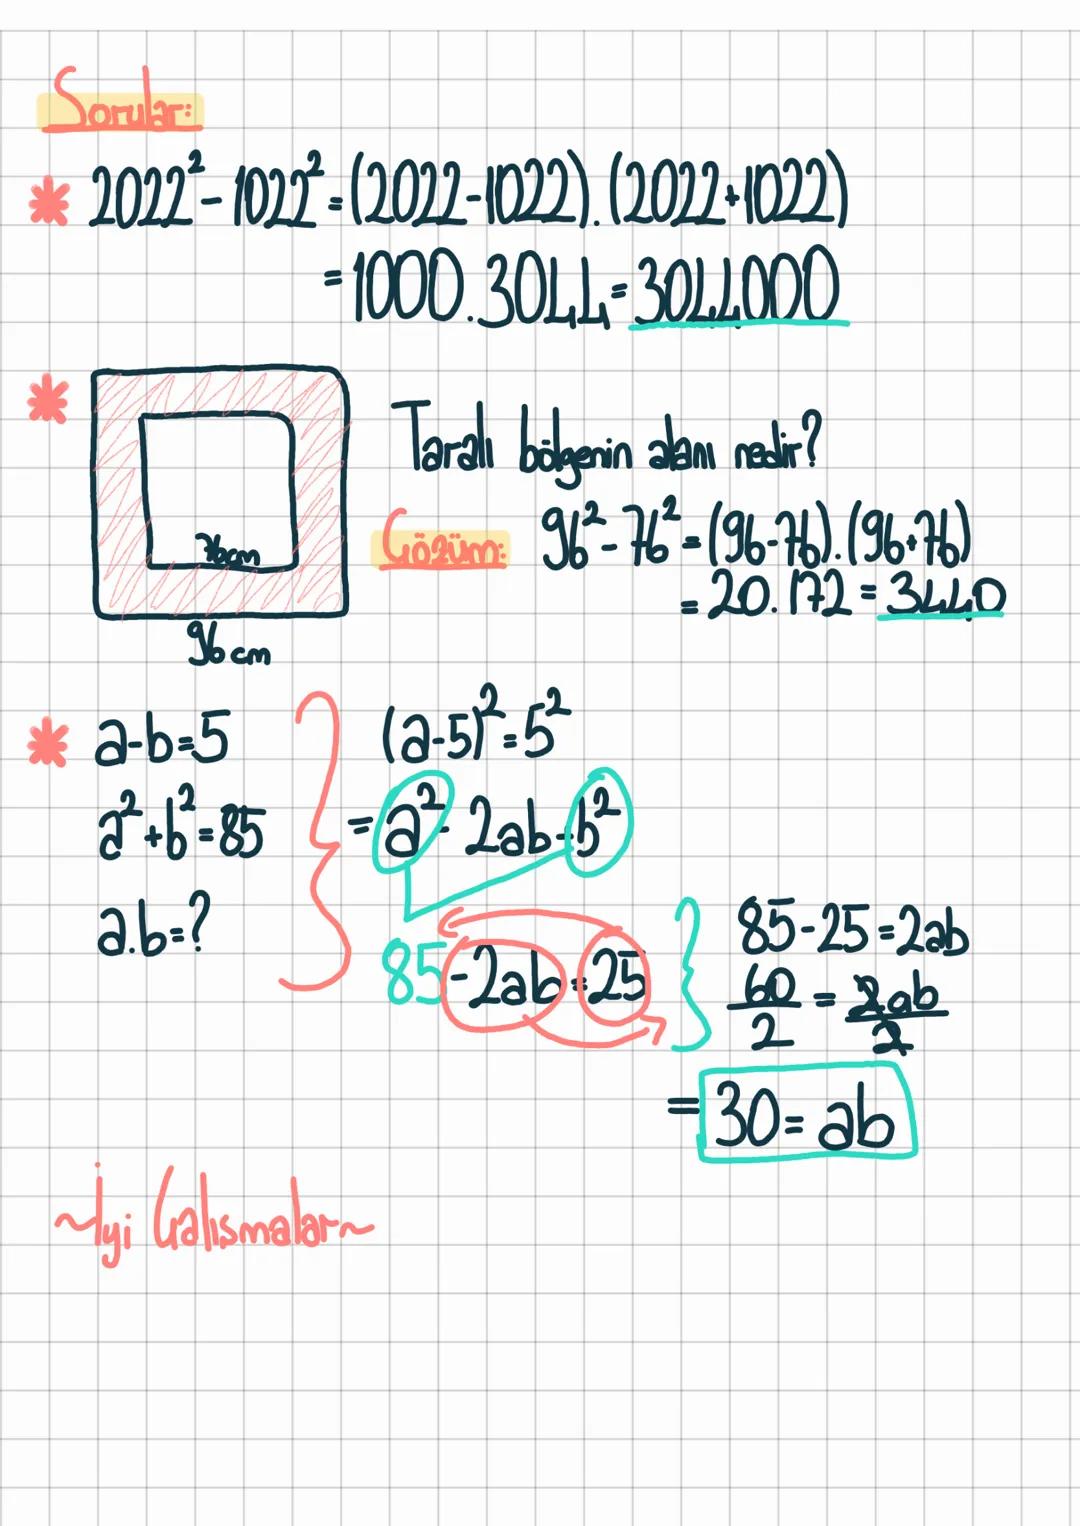 Sorular:
* 2022² - 1022² = (2022-1022).(2022+1022)
= 1000.3044 = 3044000
*
76cm
96 cm
Taralı bölgenin alanı nedir?
Çözüm: 96² - 76² = (96-76).(96+76)
= 20.172 = 3440
* a-b=5
a²+b²=85
a.b=?
(a-5)²=5²
= a² - 2ab + b²
85 - 2ab = 25
85-25=2ab
60/2 = 2ab/2
= 30 = ab
~İyi Çalışmalar~